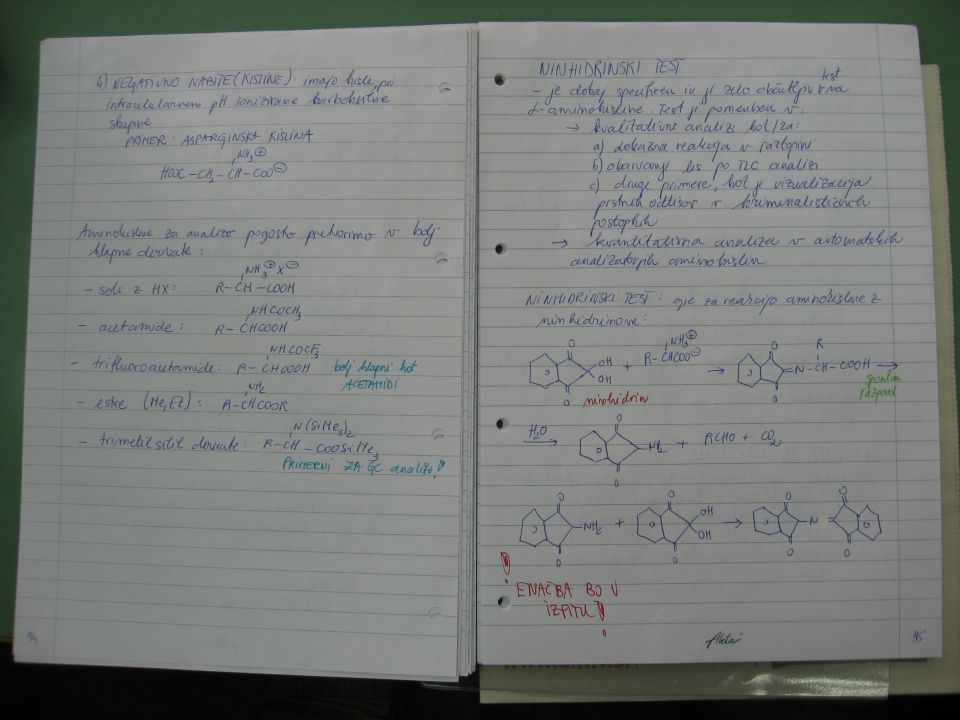 4) NEGATIVNO NABITE (KISLINE): imajo kisle, pri
intracelularnem pH ionizirane karboksilne
skupine
PRIMER: ASPARGINSKA KISLINA
NH3⊕
HOOC–CH2–CH–COO⊖
Aminokisline za analizo pogosto pretvorimo v bolj
hlapne derivate:
NH3⊕X⊖
– soli z HX: R–CH–COOH
NHCOCH3
– acetamide: R–CHCOOH
NHCOCF3
– trifluoroacetamide: R–CHCOOH bolj hlapni kot
ACETAMIDI
NH2
– estre (Me, Et): R–CHCOOR
N(SiMe3)2
– trimetilsilil derivate: R–CH–COOSiMe3
PRIMERNI ZA GC analizo!
94
NINHIDRINSKI TEST
– je dokaj specifičen in je zelo občutljiv test na
α-aminokisline. Test je pomemben v:
→ kvalitativni analizi kot/za:
a) dokazna reakcija v raztopini
b) obarvanje lis po TLC analizi
c) druge primere, kot je vizualizacija
prstnih odtisov v kriminalističnih
postopkih
→ kvantitativna analiza v avtomatskih
analizatorjih aminokislin
NINHIDRINSKI TEST: gre za reakcijo aminokisline z
ninhidrinom:
O OH OH O + NH3⊕ R–CHCOO⊖ → O O =N–CH–COOH R →
ninhidrin
spontan
razpad
H2O → O O NH2 + RCHO + CO2
O O NH2 + O O OH OH → O O N= O O
! ENAČBA BO V
IZPITU!
Aleta
95